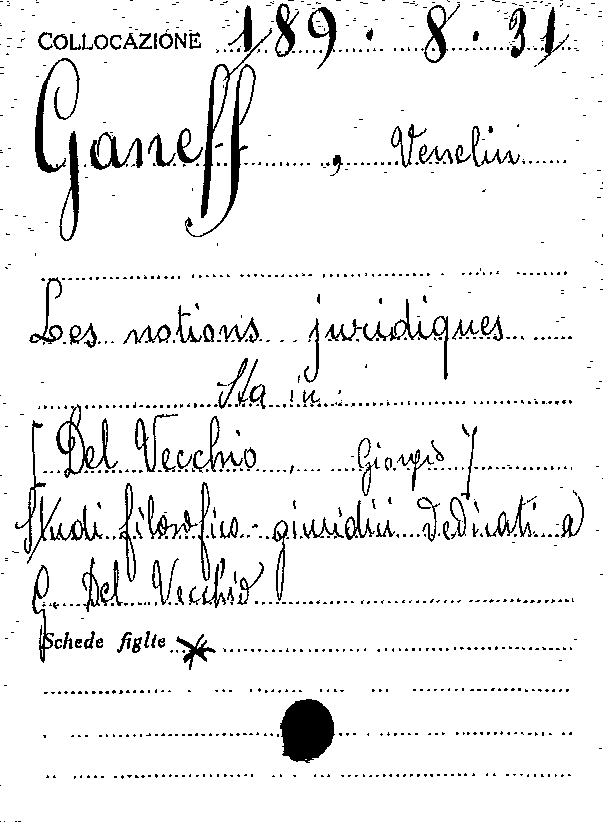 COLLOCAZIONE 189.8.31
Ganeff, Venelin
Les notions juridiques
Sta in:
[Del Vecchio, Giorgio]
Studi filosofico-giuridici dedicati a
G. Del Vecchio
Schede figlie